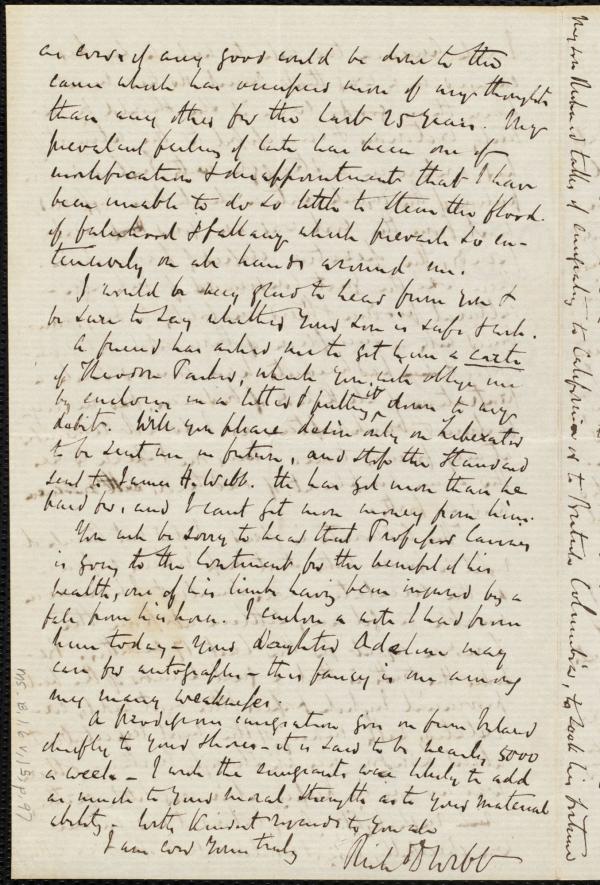 as ever if any good could be done to the
cause which has occupied more of my thoughts
than any other for the last 25 years. My
prevalent feeling of late has been one of
mortification & disappointment that I have
been unable to do so little to stem the flood
of falsehood & fallacy which prevails so ex-
tensively on all hands around me.
I would be very glad to hear from you &
be sure to say whether your son is safe & well.
A friend has asked me to get him a carte
of Theodore Parker, which you will oblige me
by enclosing in a letter & putting it down to my
debit. Will you please desire only one Liberator
to be sent me in future, and stop the Standard
sent to James H. Webb. He has got more than he
paid for, and I cant get more money from him.
You will be sorry to hear that Professor Cairnes
is going to the Continent for the benefit of his
health, one of his limbs having been injured by a
fall from his horse. I enclose a note I had from
him today - your daughter Adeline may
care for autographs - this fancy is one among
my many weaknesses.
A prodigious emigration goes on from Ireland
chiefly to your shores - it is said to be nearly 5000
a week - I wish the emigrants were likely to add
as much to your moral strength as to your material
ability. With kindest regards to you all
I am ever yours truly
Richd D Webb
My son Richard talks of emigrating to California or to British Columbia, to seek his fortune
Ms. B.1.6 v.15, p.97